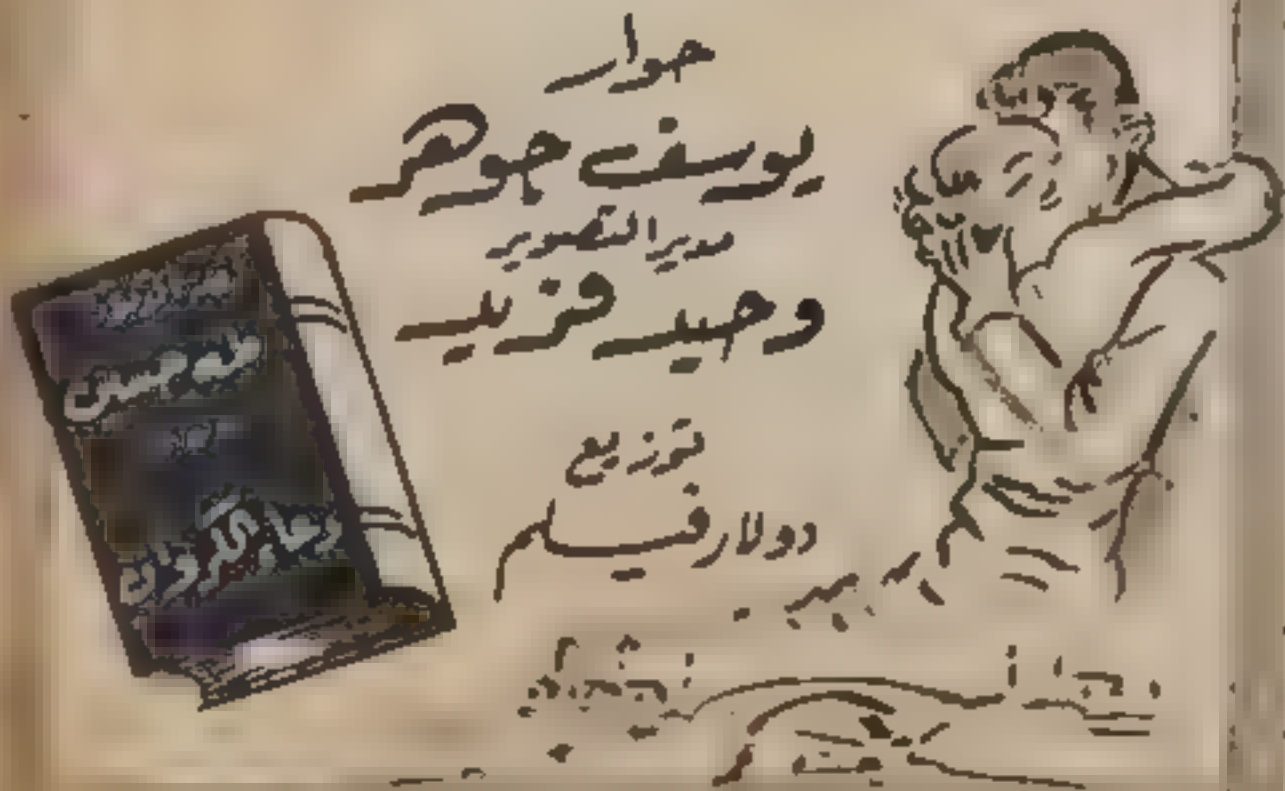 حوار
يوسف جوهر
مدير التصوير
وحيد فريد
توزيع
دولار فيلم
طه حسين
دعاء الكروان